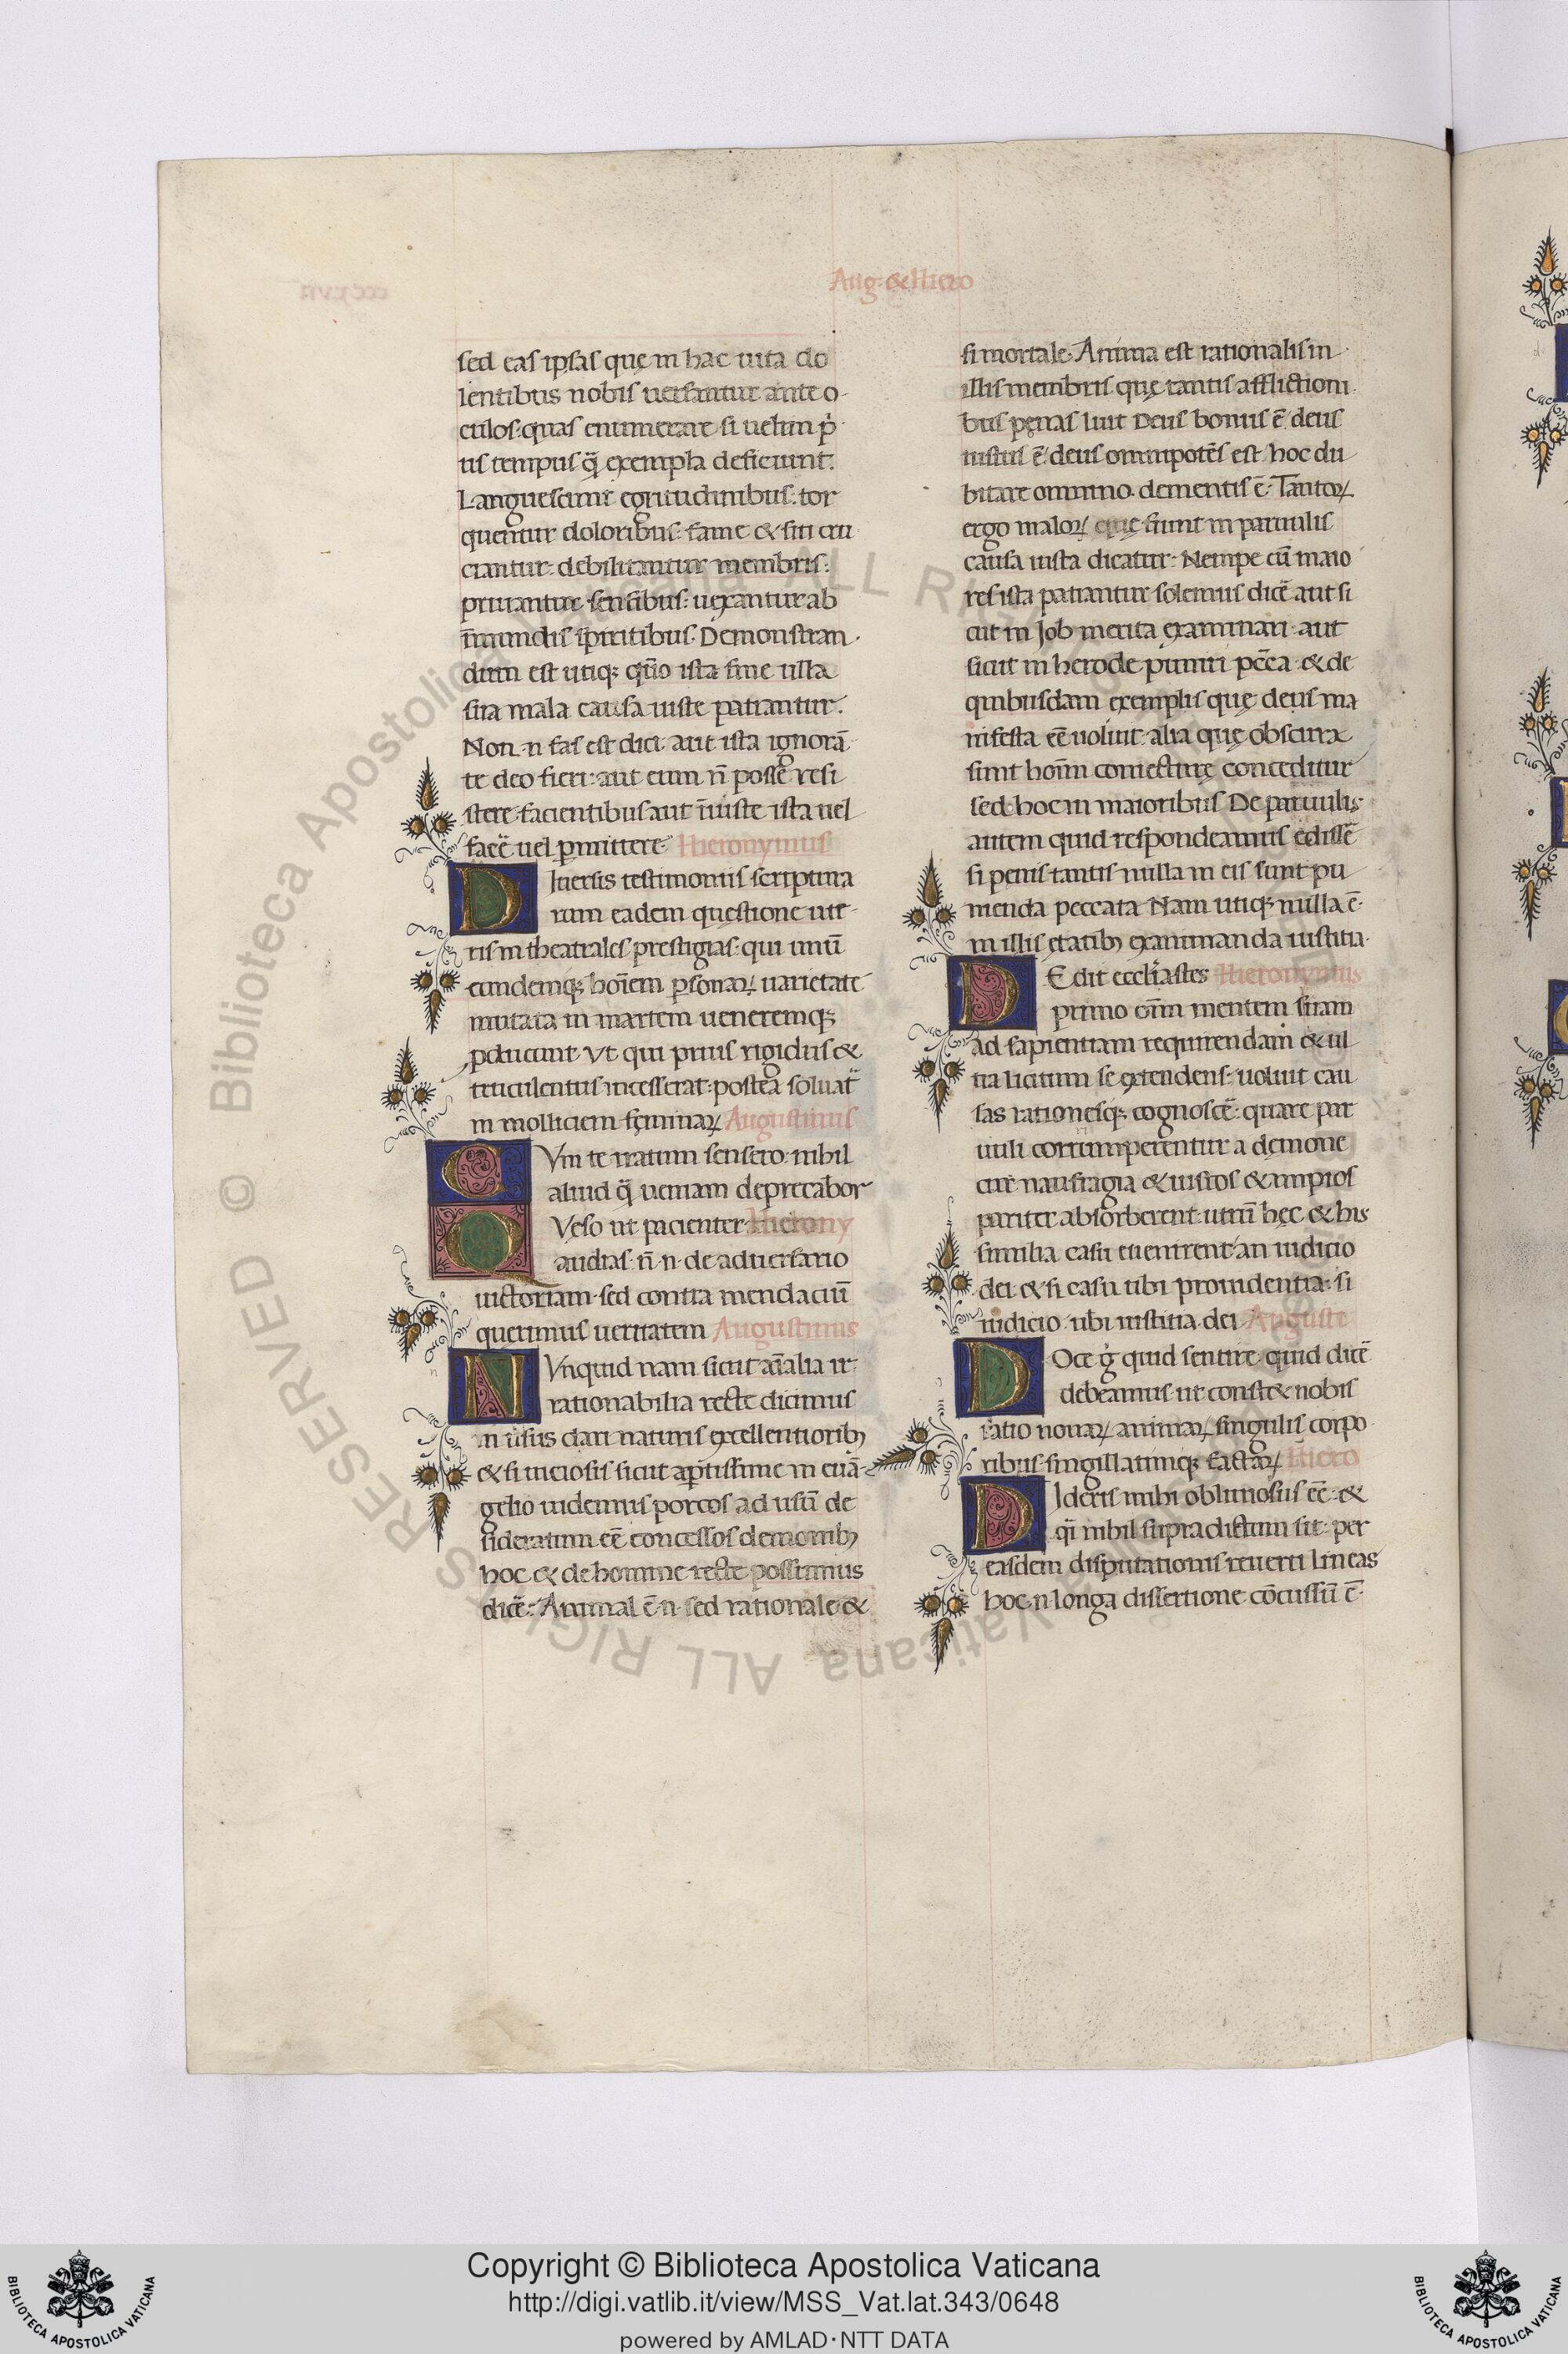 Aug. & Hiero
sed eas ipsas quę in hac uita do
lentibus nobis uersantur ante o
culos: quas enumerare si uelim p̄
us tempus q̄ exempla deficiunt.
Languescunt egritudinibus: tor
quentur doloribus: fame & siti cru
ciantur: debilitantur membris:
priuantur sensibus: uexantur ab
īmundis spiritibus. Demonstran
dum est utiq; quō ista sine ulla
sua mala causa iuste patiantur.
Non .n. fas est dici aut ista ignorā
te deo fieri: aut eum n̄ posse resi
stere facientibus aut īiuste ista uel
facē uel pmittere. Hieronymus
DIuersis testimoniis scriptura
rum eadem questione ute
ris in theatrales prestigias: qui unū
eundemq; hoīem psonaꝝ uarietate
mutata in martem ueneremq;
pducunt. Vt qui prius rigidus &
truculentus incesserat: postea soluat̄
in molliciem feminaꝝ Augustinus
CVm te iratum sensero: nihil
aliud q̄ ueniam deprecabor
QVeso ut pacienter Hierony
audias. n̄ .n. de aduersario
uictoriam sed contra mendaciū
querimus ueritatem Augustinus
NVnquid nam sicut aīalia ir
rationabilia recte dicimus
in usus dari naturis excellentiorib;
& si uiciosis sicut aptissime in euā
gelio uidemus porcos ad usū de
sideratum eē concessos demonib;
hoc & de homine recte possimus
dicē: Animal ē .n. sed rationale &
si mortale. Anima est rationalis in
illis membris quę tantis afflictioni
bus pęnas luit Deus bonus ē deus
iustus ē deus omnipotēs est hoc du
bitare omnino dementis ē. Tantoꝝ
ergo maloꝝ quę fiunt in paruulis
causa iusta dicatur. Nempe cū maio
res ista patiantur solemus dicē aut si
cut in Job merita examinari aut
sicut in herode puniri pcc̄a & de
quibusdam exemplis quę deus ma
nifesta eē uoluit: alia quę obscura
sunt hoīm coniecturę conceditur
sed hoc in maioribus De paruulis
autem quid respondeamus edissē
si penis tantis nulla in eis sunt pu
nienda peccata Nam utiq; nulla ē
in illis etatib; examinanda iustitia.
DEdit eccli'astes Hieronymus
primo oīm mentem suam
ad sapientiam requirendam & ul
tra licitum se extendens: uoluit cau
sas rationesq; cognoscē: quare par
uuli corrumperentur a demone
cur naufragia & iustos & impios
pariter absorberent: utrū hęc & his
similia casu euenirent an iudicio
dei. & si casu ubi prouidentia: si
iudicio ubi iustitia dei Auguste
DOce ġ quid sentire quid dicē
debeamus ut constet nobis
ratio nouaꝝ animaꝝ singulis corpo
ribus singillatimq; factaꝝ Hiero
VIderis mihi obliuiosus eē: &
qī nihil supradictum sit: per
easdem disputationis reuerti lineas
hoc .n. longa dissertione cōcussū ē.
© Biblioteca Apostolica Vaticana ALL RIGHTS RESERVED
Copyright © Biblioteca Apostolica Vaticana
http://digi.vatlib.it/view/MSS_Vat.lat.343/0648
powered by AMLAD·NTT DATA
BIBLIOTECA APOSTOLICA VATICANA
BIBLIOTECA APOSTOLICA VATICANA